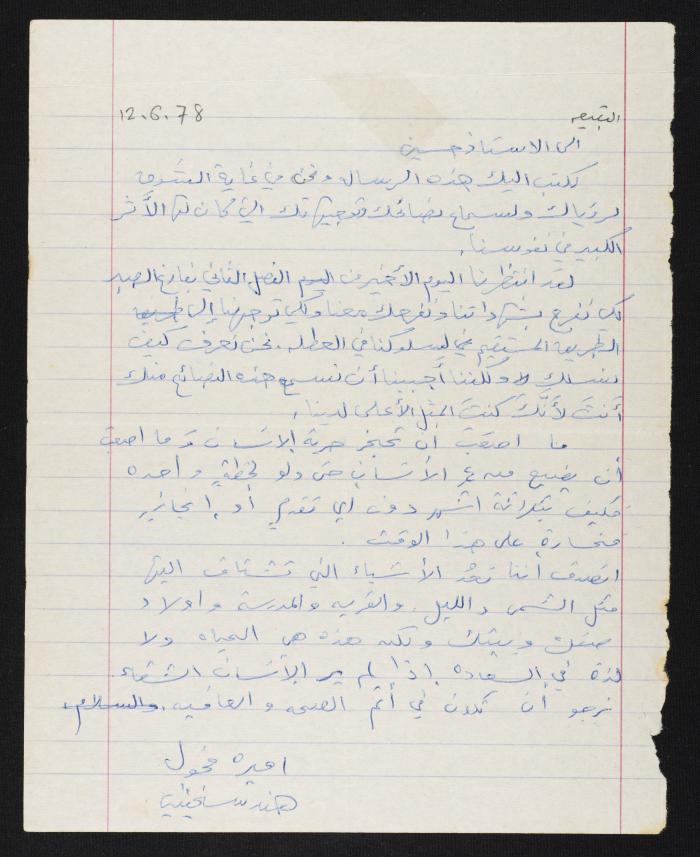 البقيعه 12.6.78
الى الاستاذ حسين
نكتب اليك هذه الرساله ونحن في غاية الشوق
لرؤياك ولسماع نصائحك وتوجيهاتك التي كان لها الأثر
الكبير في نفوسنا.
لقد انتظرنا اليوم الأخير من اليوم الفصل الثاني بفارغ الصبر
لكي نفرح بشهاداتنا ونفرحك معنا ولكي توجهنا إلى طريقة
الطريق المستقيم في سلوكنا في العطله. نحن نعرف كيف
نسلك ولكننا أحببنا أن نسمع هذه النصائح منك
أنتَ لأنَّكَ كنتَ المثل الأعلى لدينا.
ما اصعَبَ ان تحتجز حرية الإنسان وَما اصعبَ
أن يضيع من عمر الأنسانِ حتى ولو لحظةٍ واحده
فكيف بثلاثة اشهر دون اي تقدمٍ أو إنجازٍ
فخسارة على هذا الوقت.
اتصدق أننا نعُد الأشياء التي تشتاق اليها
مثل الشمس والليل. والقريه والمدرسة واولاد
صفك وبيتك ولكن هذه هي الحياه ولا
لذة في السعاده إذا لم ير الإنسان الشقاء.
نرجو أن تكون في أتم الصحه والعافيه. والسلام.
اميره مخول
هند سخنيني